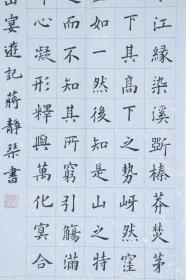 江緣染溪斲榛莽焚茅
下其高下之勢岈然窪
如一然後知是山之特
而不知其所窮引觴滿
心凝形釋與萬化冥合
宴遊記蔣靜琹書